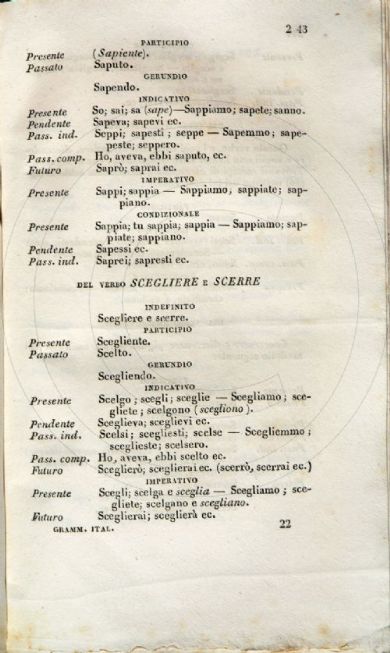 2 43
PARTICIPIO
Presente (Sapiente).
Passato Saputo.
GERUNDIO
Sapendo.
INDICATIVO
Presente So; sai; sa (sape)—Sappiamo; sapete; sanno.
Pendente Sapeva; sapevi ec.
Pass. ind. Seppi; sapesti; seppe — Sapemmo; sape-
peste; seppero.
Pass. comp. Ho, aveva, ebbi saputo, ec.
Futuro Saprò; saprai ec.
IMPERATIVO
Presente Sappi; sappia — Sappiamo, sappiate; sap-
piano.
CONDIZIONALE
Presente Sappia; tu sappia; sappia — Sappiamo; sap-
piate; sappiano.
Pendente Sapessi ec.
Pass. ind. Saprei; sapresti ec.
DEL VERBO SCEGLIERE E SCERRE
INDEFINITO
Scegliere e scerre.
PARTICIPIO
Presente Scegliente.
Passato Scelto.
GERUNDIO
Scegliendo.
INDICATIVO
Presente Scelgo; scegli; sceglie — Scegliamo; sce-
gliete; scelgono (scegliono).
Pendente Sceglieva; sceglievi ec.
Pass. ind. Scelsi; scegliesti; scelse — Scegliemmo;
sceglieste; scelsero.
Pass. comp. Ho, aveva, ebbi scelto ec.
Futuro Sceglierò; sceglierai ec. (scerrò, scerrai ec.)
IMPERATIVO
Presente Scegli; scelga e sceglia — Scegliamo; sce-
gliete; scelgano e scegliano.
Futuro Sceglierai; sceglierà ec.
GRAMM. ITAL. 22